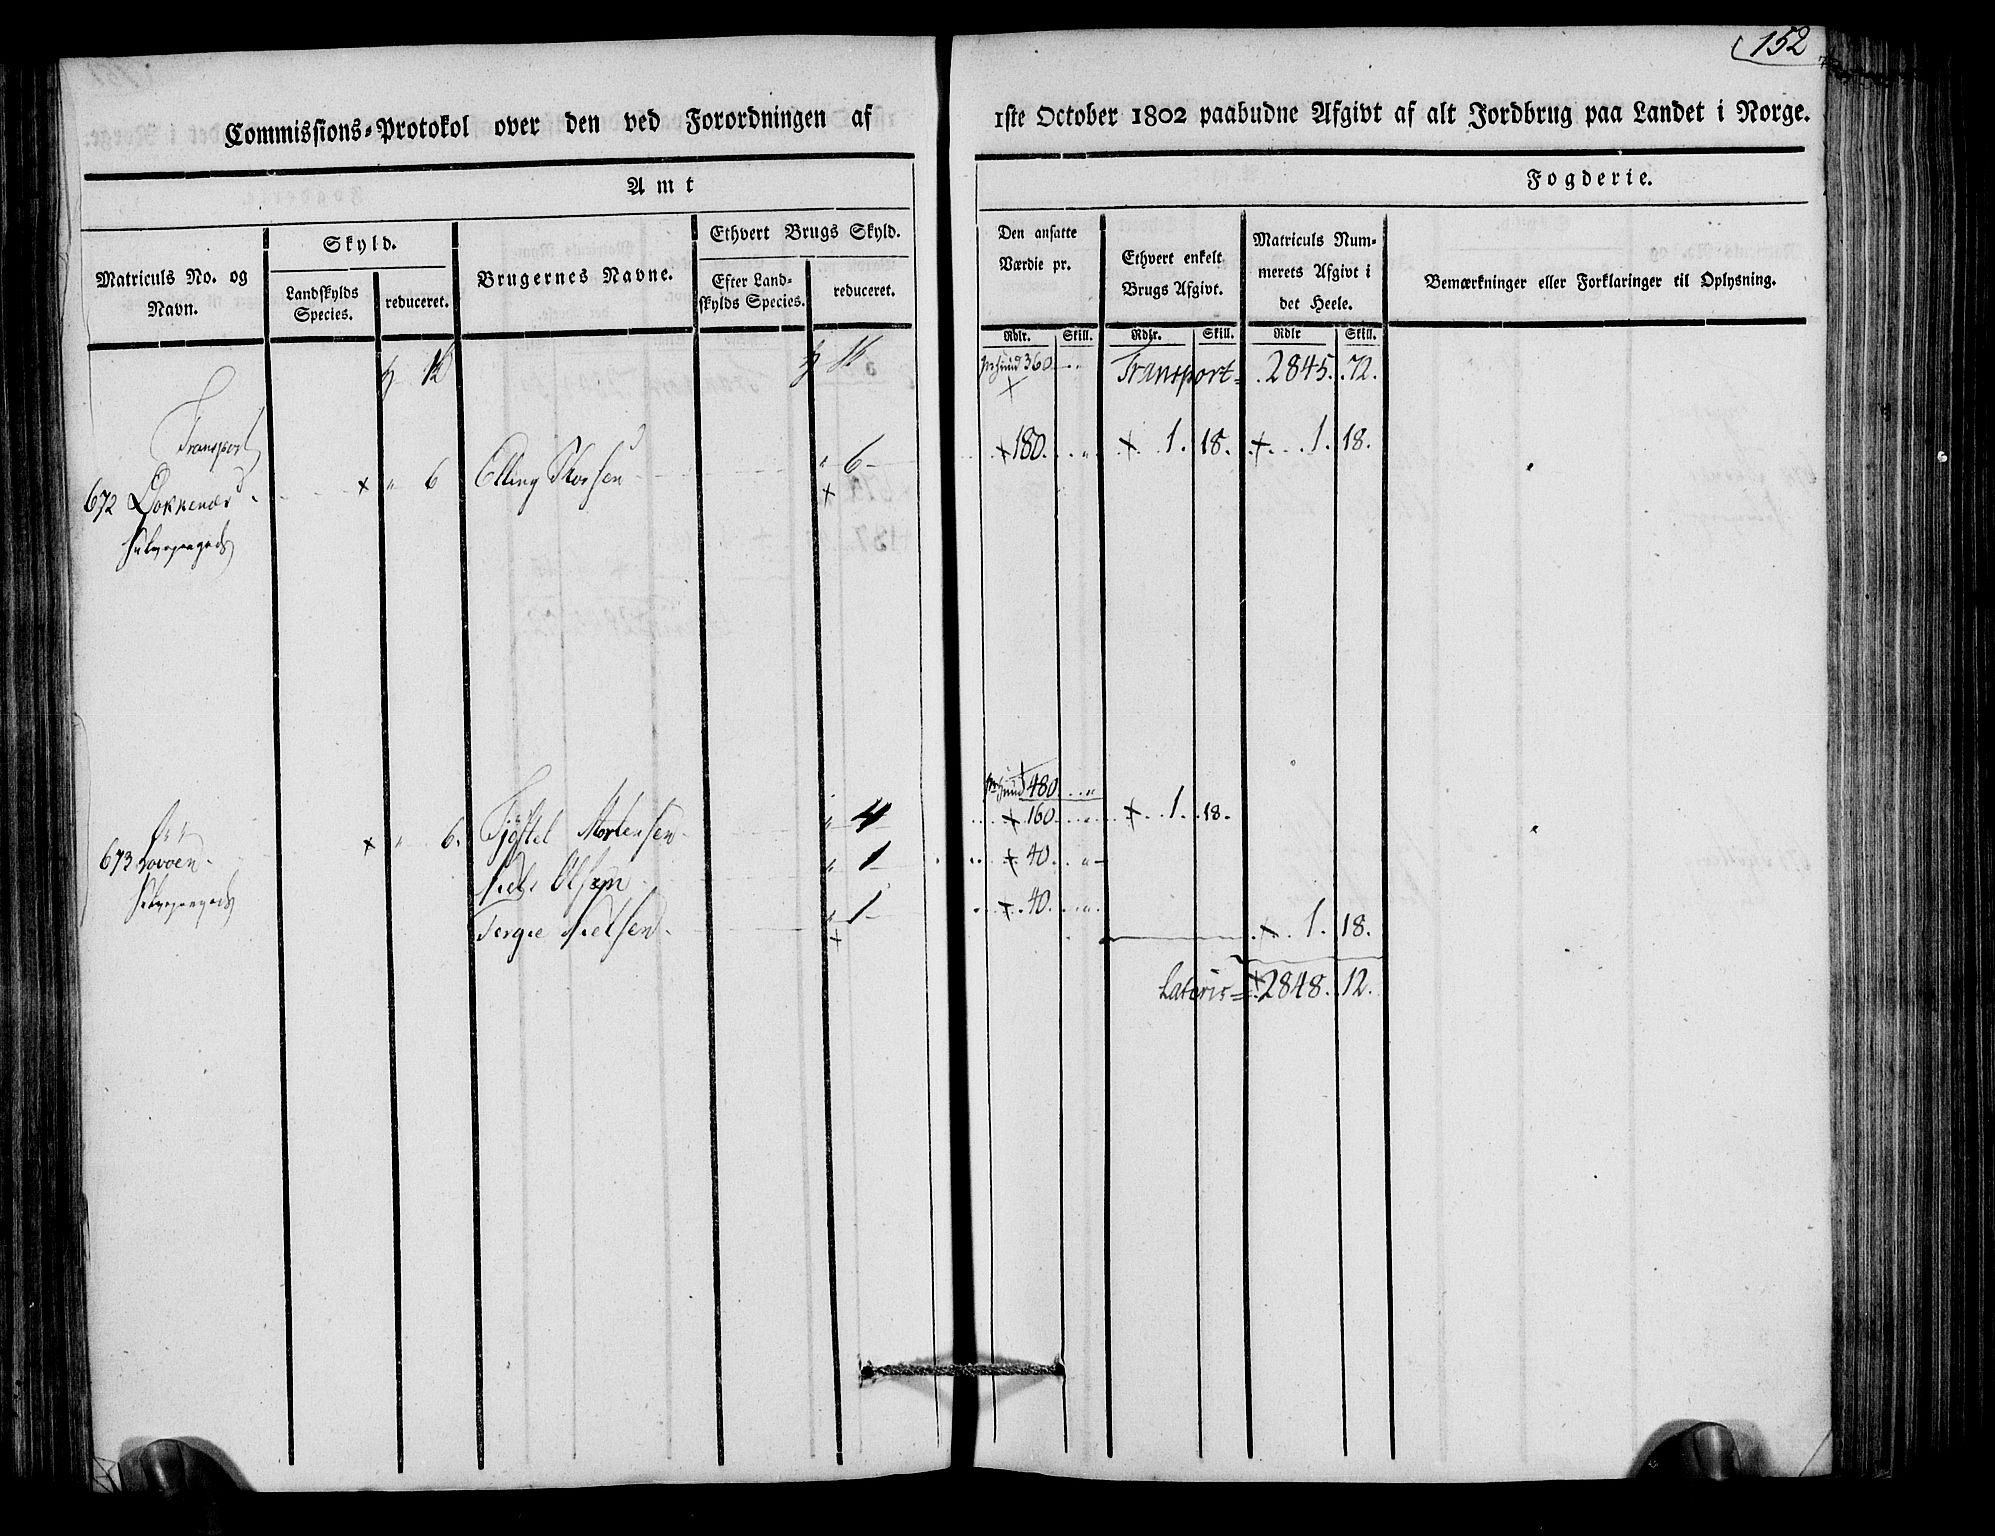 152
Commissions-Protokol over den ved Forordningen af 1ste October 1802 paabudne Afgivt af alt Jordbrug paa Landet i Norge.
Amt
Fogderie.
Matriculs No. og Navn.
Skyld.
Landskylds Species.
reduceret.
Brugernes Navne.
Ethvert Brugs Skyld.
Efter Landskylds Species.
reduceret.
Den ansatte Værdie pr.
Ethvert enkelt Brugs Afgivt.
Matriculs Nummerets Afgivt i det Heele.
Bemærkninger eller Forklaringer til Oplysning.
Rdlr. Skill. Rdlr. Skill. Rdlr Skill.
360 Transport 2845. 72.
Transport
672 6 Elling 6 180 1. 18. 1. 18.
Selveyergods
480
673 6. Tjøstel Mortensen 4 160 1. 18.
Selveyergods Niels Olsen 1 40
Torger Nielsen 1 40 1. 18.
Lateris 2848. 12.